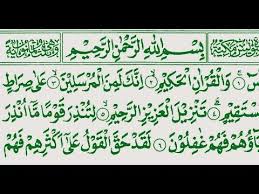 بِسْمِ اللهِ الرَّحْمٰنِ الرَّحِيْمِ
سٓ ۝١ وَالْقُرْاٰنِ الْحَكِيْمِ ۝٢ اِنَّكَ لَمِنَ الْمُرْسَلِيْنَ ۝٣ عَلٰى صِرَاطٍ
سْتَقِيْمٍ ۝٤ تَنْزِيْلَ الْعَزِيْزِ الرَّحِيْمِ ۝٥ لِتُنْذِرَ قَوْمًا مَّا اُنْذِرَ
بَاؤُهُمْ فَهُمْ غٰفِلُوْنَ ۝٦ لَقَدْ حَقَّ الْقَوْلُ عَلٰى اَكْثَرِهِمْ فَهُمْ